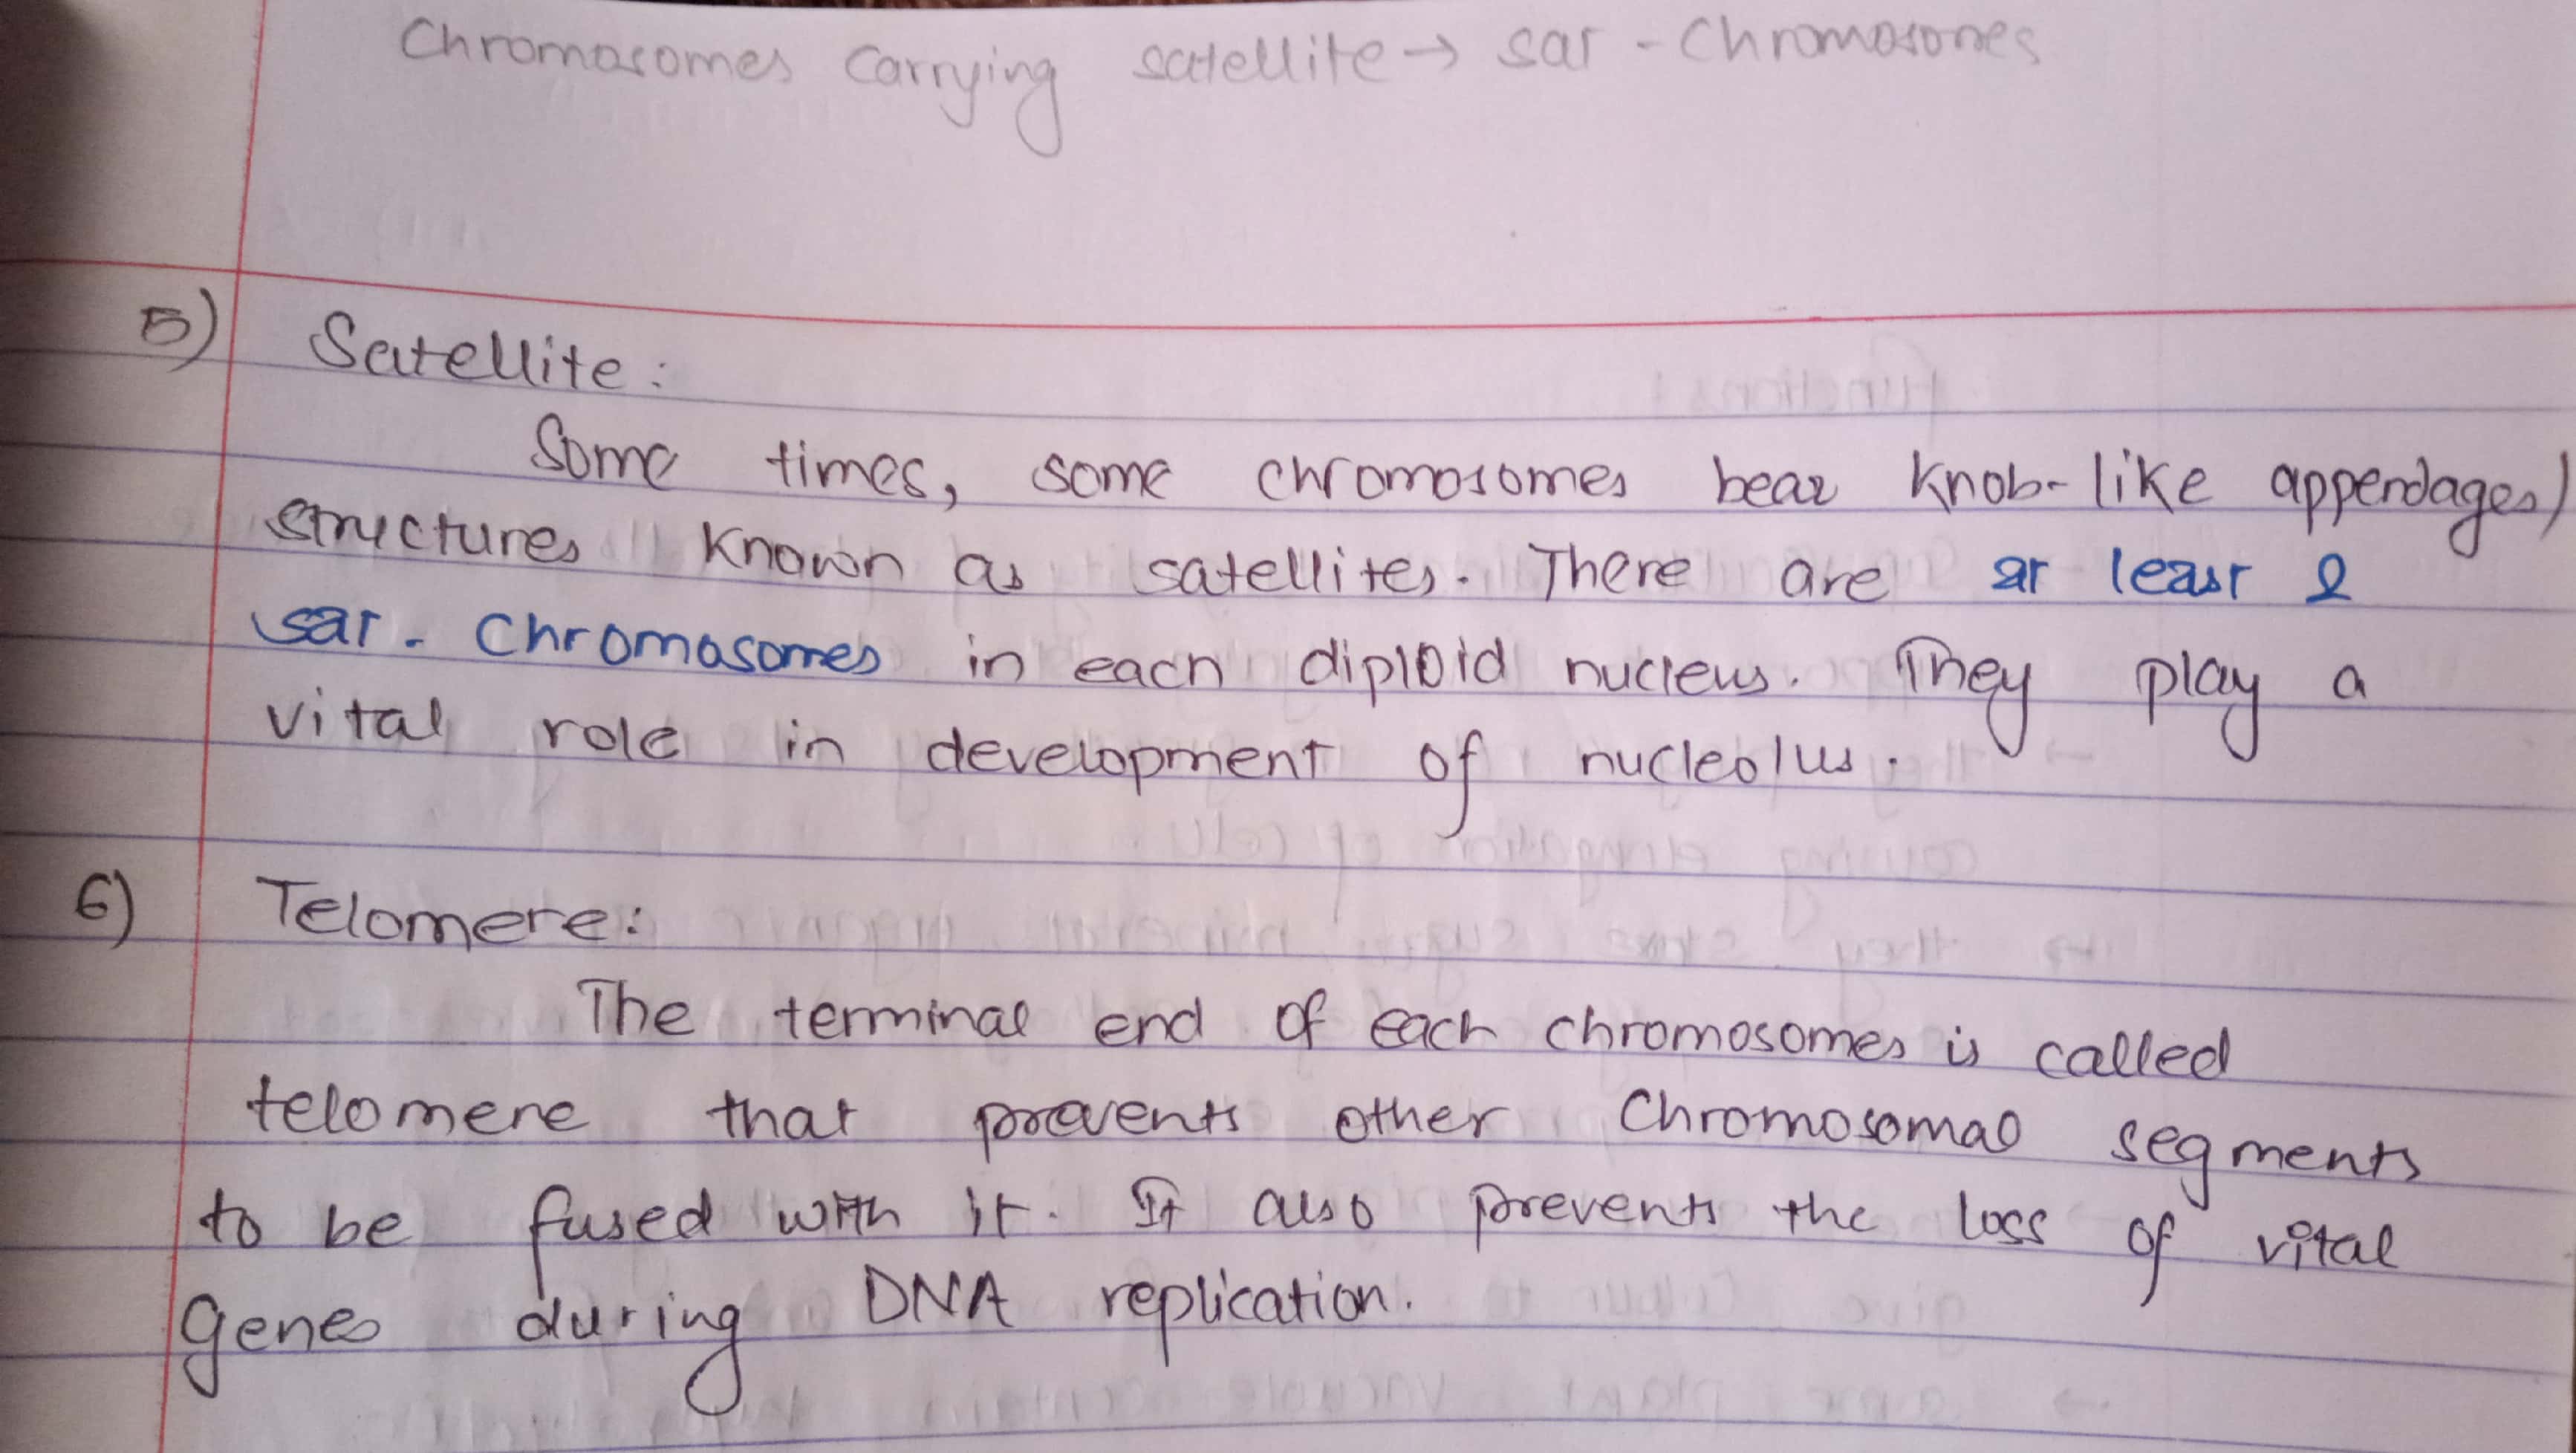 Chromosomes carrying satellite → sat - Chromosomes
5) Satellite:
Some times, some chromosomes bear knob-like appendages)
structures known as satellites. There are at least 2
sat - Chromosomes in each diploid nucleus. They play a
vital role in development of nucleolus.
6) Telomere:
The terminal end of each chromosomes is called
telomere that prevents other Chromosomal segments
to be fused with it. It also prevents the loss of vital
genes during DNA replication.